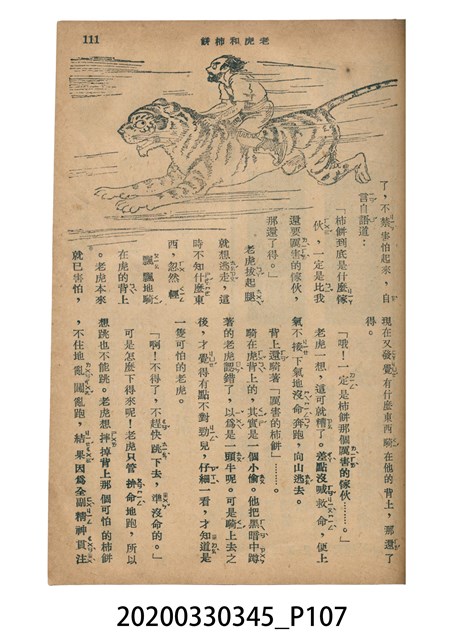 111
老虎和柿餅
了，不禁害怕起來，自
言自語道：
「柿餅到底是什麼傢
伙，一定是比我
還要厲害的傢伙，
那還了得。」
老虎拔起腿
就想逃走，這
時不知什麼東
西，忽然輕
飄飄地騎
在虎的背上
。老虎本來
就已害怕，
現在又發覺有什麼東西騎在他的背上，那還了
得。
「哦！一定是柿餅那個厲害的傢伙………。」
老虎一想，這可就糟了。差點沒喊救命，便上
氣不接下氣地沒命奔跑，向山逃去。
背上還騎著「厲害的柿餅」………。
騎在虎背上的，其實是一個小偷。他把黑暗中蹲
著的老虎認錯了，以為是一頭牛呢。可是騎上去之
後，才覺得有點不對勁兒，仔細一看，才知道是
一隻可怕的老虎。
「啊！不得了，不趕快跳下去，準沒命的。」
可是怎麼下得來呢！老虎只管拚命地跑，所以
想跳也不能跳。老虎想摔掉背上那個可怕的柿餅
，不住地亂闖亂跑，結果因為全副精神貫注
20200330345_P107